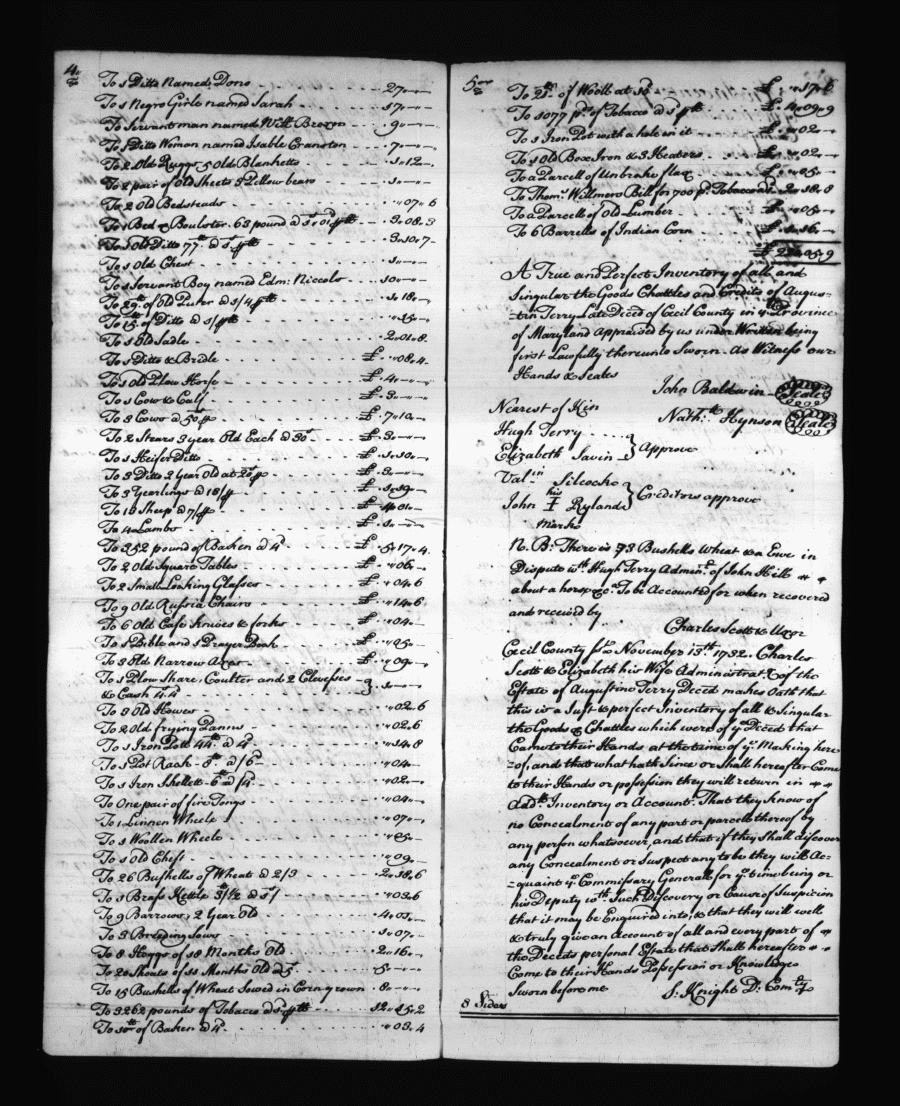 4
To 1 Ditto Named Dono 27"-"-
To 1 Negro Girle named Sarah 17"-"-
To Servant man named Will: Brown 9"-"-
To 1 Ditto Woman named Isable Cranston 7"-"-
To 2 Old Ruggs 5 old Blanketts 1"12"-
To 2 pair of Old Sheets 3 Pellow bears 1"-"-
To 2 Old Bedsteads "07"6
To 1 Bed & Boulster 63 pound 3"08"3
To 1 Old Ditto 77 lb 3"10"7
To 1 Old Chest 1"-"-
To 1 Servant Boy named Edm: Niccols 10"-"-
To 29 lb of old Puter a 1/4 p lb 1"18"
To 15 lb of Ditto a 1/ p lb "15"-
To 1 old Sadle 2"01"8
To 1 Ditto & Bridle £ "08"4
To 1 old Plow Horse £ 4"-"-
To 1 Cow & Calf £ 3"-"-
To 3 Cows a 50/ p £ 7"10"-
To 2 Stears 3 year Old Each a 30/ £ 3"-"-
To 1 Heifer Ditto £ 1"10"-
To 3 Ditto 2 Year Old at £ 3"-"-
To 3 Yearlings a 13/ p £ 1"19"-
To Sheep a 7/ p £ 4"01"-
To 4 Lambs £ 1"-"-
To 352 pound of Baken a 4d £ 5"17"4
To 2 Old Square Tables £ "06"-
To 2 Small Looking Glasses £ "04"6
To 9 Old Russia Chairs £ "14"6
To 6 Old Case Knives & forks £ "04"-
To 1 Bible and 1 Prayer Book £ "05"-
To 3 Old Narrow Axes £ "09"-
To 1 Plow Share, Coulter and 2 Clevesses
& Cash 4.4 } 1"-"-
To 3 Old Howes "02"6
To 2 Old frying Panns "02"6
To 1 Iron Pott 44 lb a 4d "14"8
To 1 Pot Rack 8 lb a /6 "04"-
To 1 Iron Skellett 6 lb a /4 "02"-
To One pair of fire Tongs "04"-
To 1 Linnen Wheele "07"-
To 1 Woollen Wheele "05"-
To 1 old Chest "09"-
To 26 Bushells of Wheat a 2/3 2"18"6
To 1 Brass Kettle 3 1/2 a 1/ "03"6
To 9 Barrows, 2 Year old 4"03"-
To 3 Breeding Sows 1"07"-
To 8 Hoggs of 18 Months Old 2"16"-
To 20 Shouts of 11 Months Old a 5 5"-"-
To 15 Bushells of Wheat Sowed in Corn grown 8"-"-
To 3262 pounds of Tobacco a 1d p lb 12"15"2
To 10 lb of Baken a 4d "03"4
5
To of Wooll at £ "17"6
To 1077 p ds of Tobacco a 1d p lb £ 4"09"9
To 1 Iron Pot with a hole in it £ "02"-
To 1 Old Box Iron & 3 Heaters £ "02"-
To a Parcell of Unbroke flax £ "05"-
To Thom s Willmers Bill for 700 p d Tobacco 2"18"8
To a Parcell of Old Lumber £ "05"-
To 6 Barrells of Indian Corn £ 1"16"-
£ "05"9
A True and Perfect Inventory of all and
Singular the Goods Chattles and Credits of Augus-
-tin Terry Late Deced of Cecil County in ye Province
of Maryland Appraized by us under Written being
first Lawfully thereunto Sworn. As Witness our
Hands & Seales
John Baldwin Seale
Nath: ll Hynson Seale
Nearest of Kin
Hugh Terry
Elizabeth Savin } Approve
Val: in Silcocks
John his I Rylands } Creditors approve
Marke
N. B: There is 73 Bushells Wheat & a Ewe in
Dispute w th Hugh Terry Admin r of John Hill
about a horse &c. To be Accounted for when recovered
and received by
Charles Scott & Uxor
Cecil County ss November 13th 1732. Charles
Scott & Elizabeth his Wife Administrat rs of the
Estate of Augustine Terry Deced makes Oath that
this is a Just & perfect Inventory of all & Singular
the Goods & Chattles which were of ye Deced that
Came to their Hands at the time of ye Making here
-of, and that what hath Since or shall hereafter Come
to their Hands or possession they will return in
Add ll Inventory or Account. That they know of
no Concealment of any part or parcell thereof by
any person whatsoever, and that if they Shall discover
any Concealment or Suspect any to be they will Ac-
-quaint ye Commissary Generall for ye time being or
his Deputy w th Such Discovery or Cause of Suspicion
that it may be Enquired into, & that they will well
& truly give an Account of all and every part of
the Deceds personal Estate that Shall hereafter
Come to their Hands Possession or Knowledge
Sworn before me S: Knight D: Com ry
8 Sides